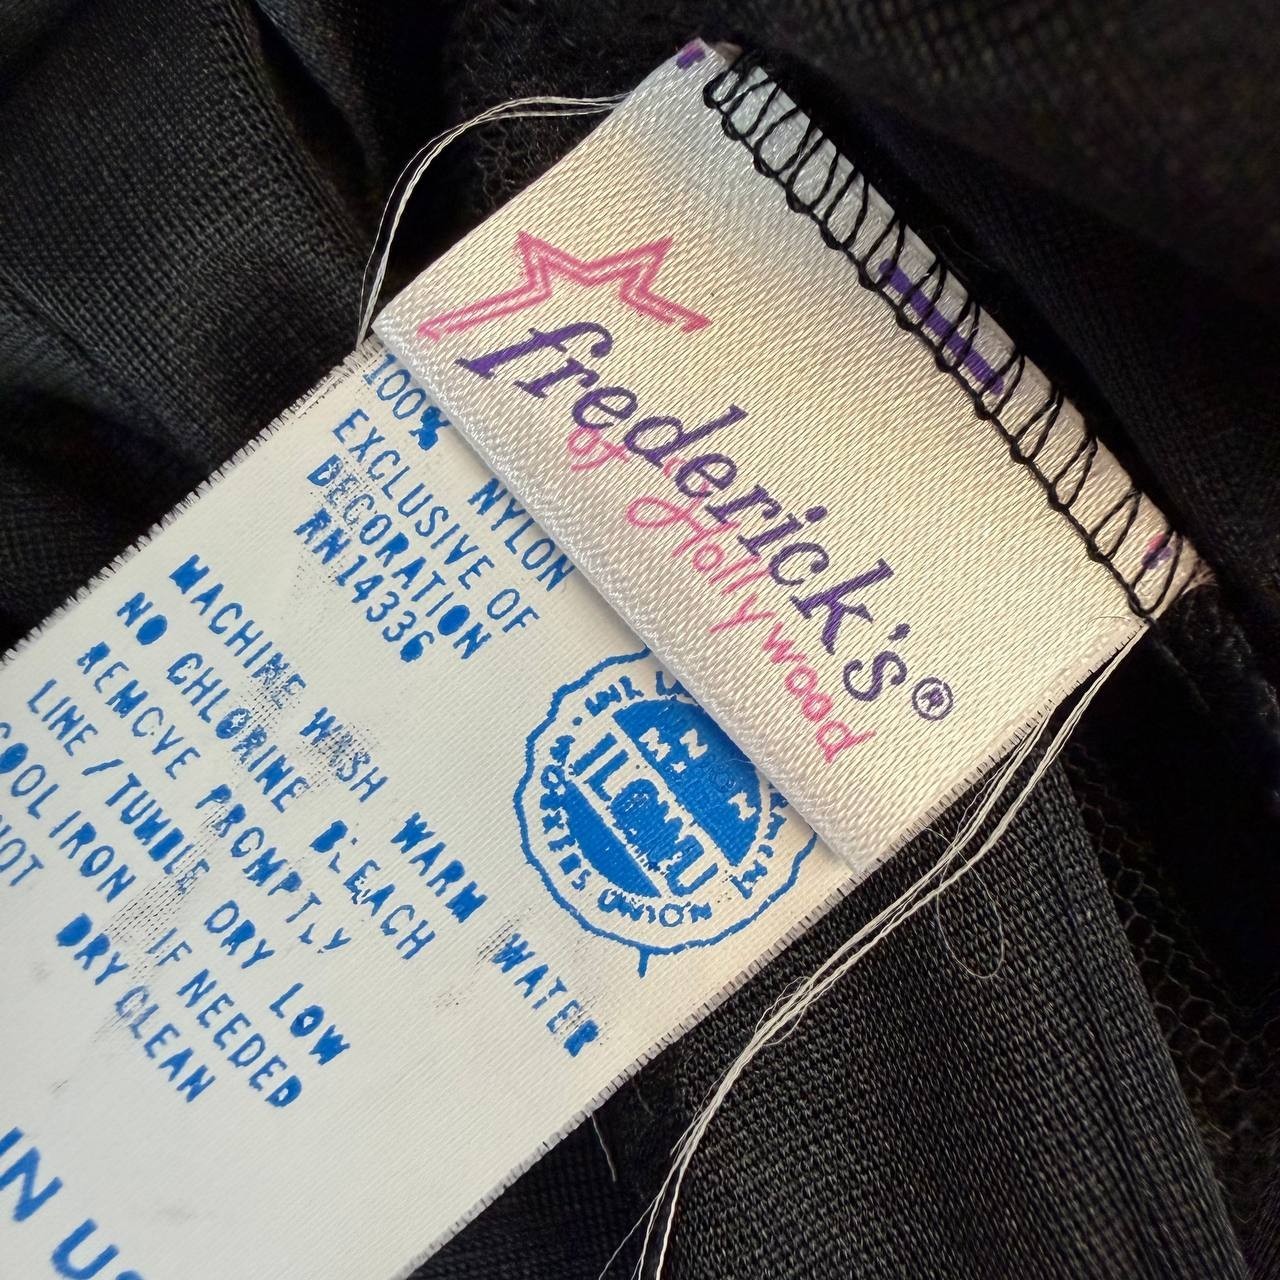 frederick's®
of Hollywood
100% NYLON
EXCLUSIVE OF
DECORATION
RN14336
MACHINE WASH WARM WATER
NO CHLORINE BLEACH
REMOVE PROMPTLY
LINE / TUMBLE DRY LOW
COOL IRON IF NEEDED
NOT DRY CLEAN
UNION
IN US